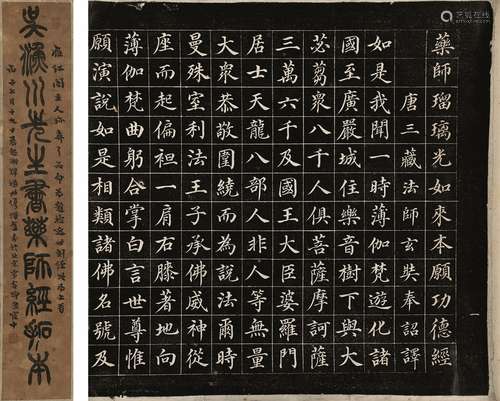 一
藥師瑠璃光如來本願功德經
唐三藏法師玄奘奉詔譯
如是我聞一時薄伽梵遊化諸
國至廣嚴城住樂音樹下與大
苾芻眾八千人俱菩薩摩訶薩
三萬六千及國王大臣婆羅門
居士天龍八部人非人等無量
大眾恭敬圍繞而為說法爾時
曼殊室利法王子承佛威神從
座而起偏袒一肩右膝著地向
薄伽梵曲躬合掌白言世尊惟
願演說如是相類諸佛名號及
吳漁川先生書藥師經拓本